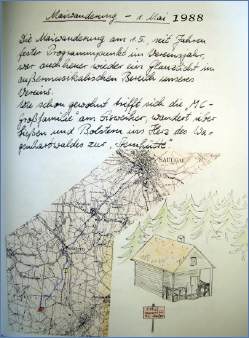 Maiwanderung - 1. Mai 1988
Die Maiwanderung am 1.5., seit Jahren
fester Programmpunkt im Vereinsjahr,
war auch heuer wieder ein Glanzlicht im
außermusikalischen Bereich unseres
Vereins.
Wie schon gewohnt trifft sich die
Großfamilie" am wandert über
und Bolstern ins Herz des Wa-
genhartwaldes zur
SAULGAU